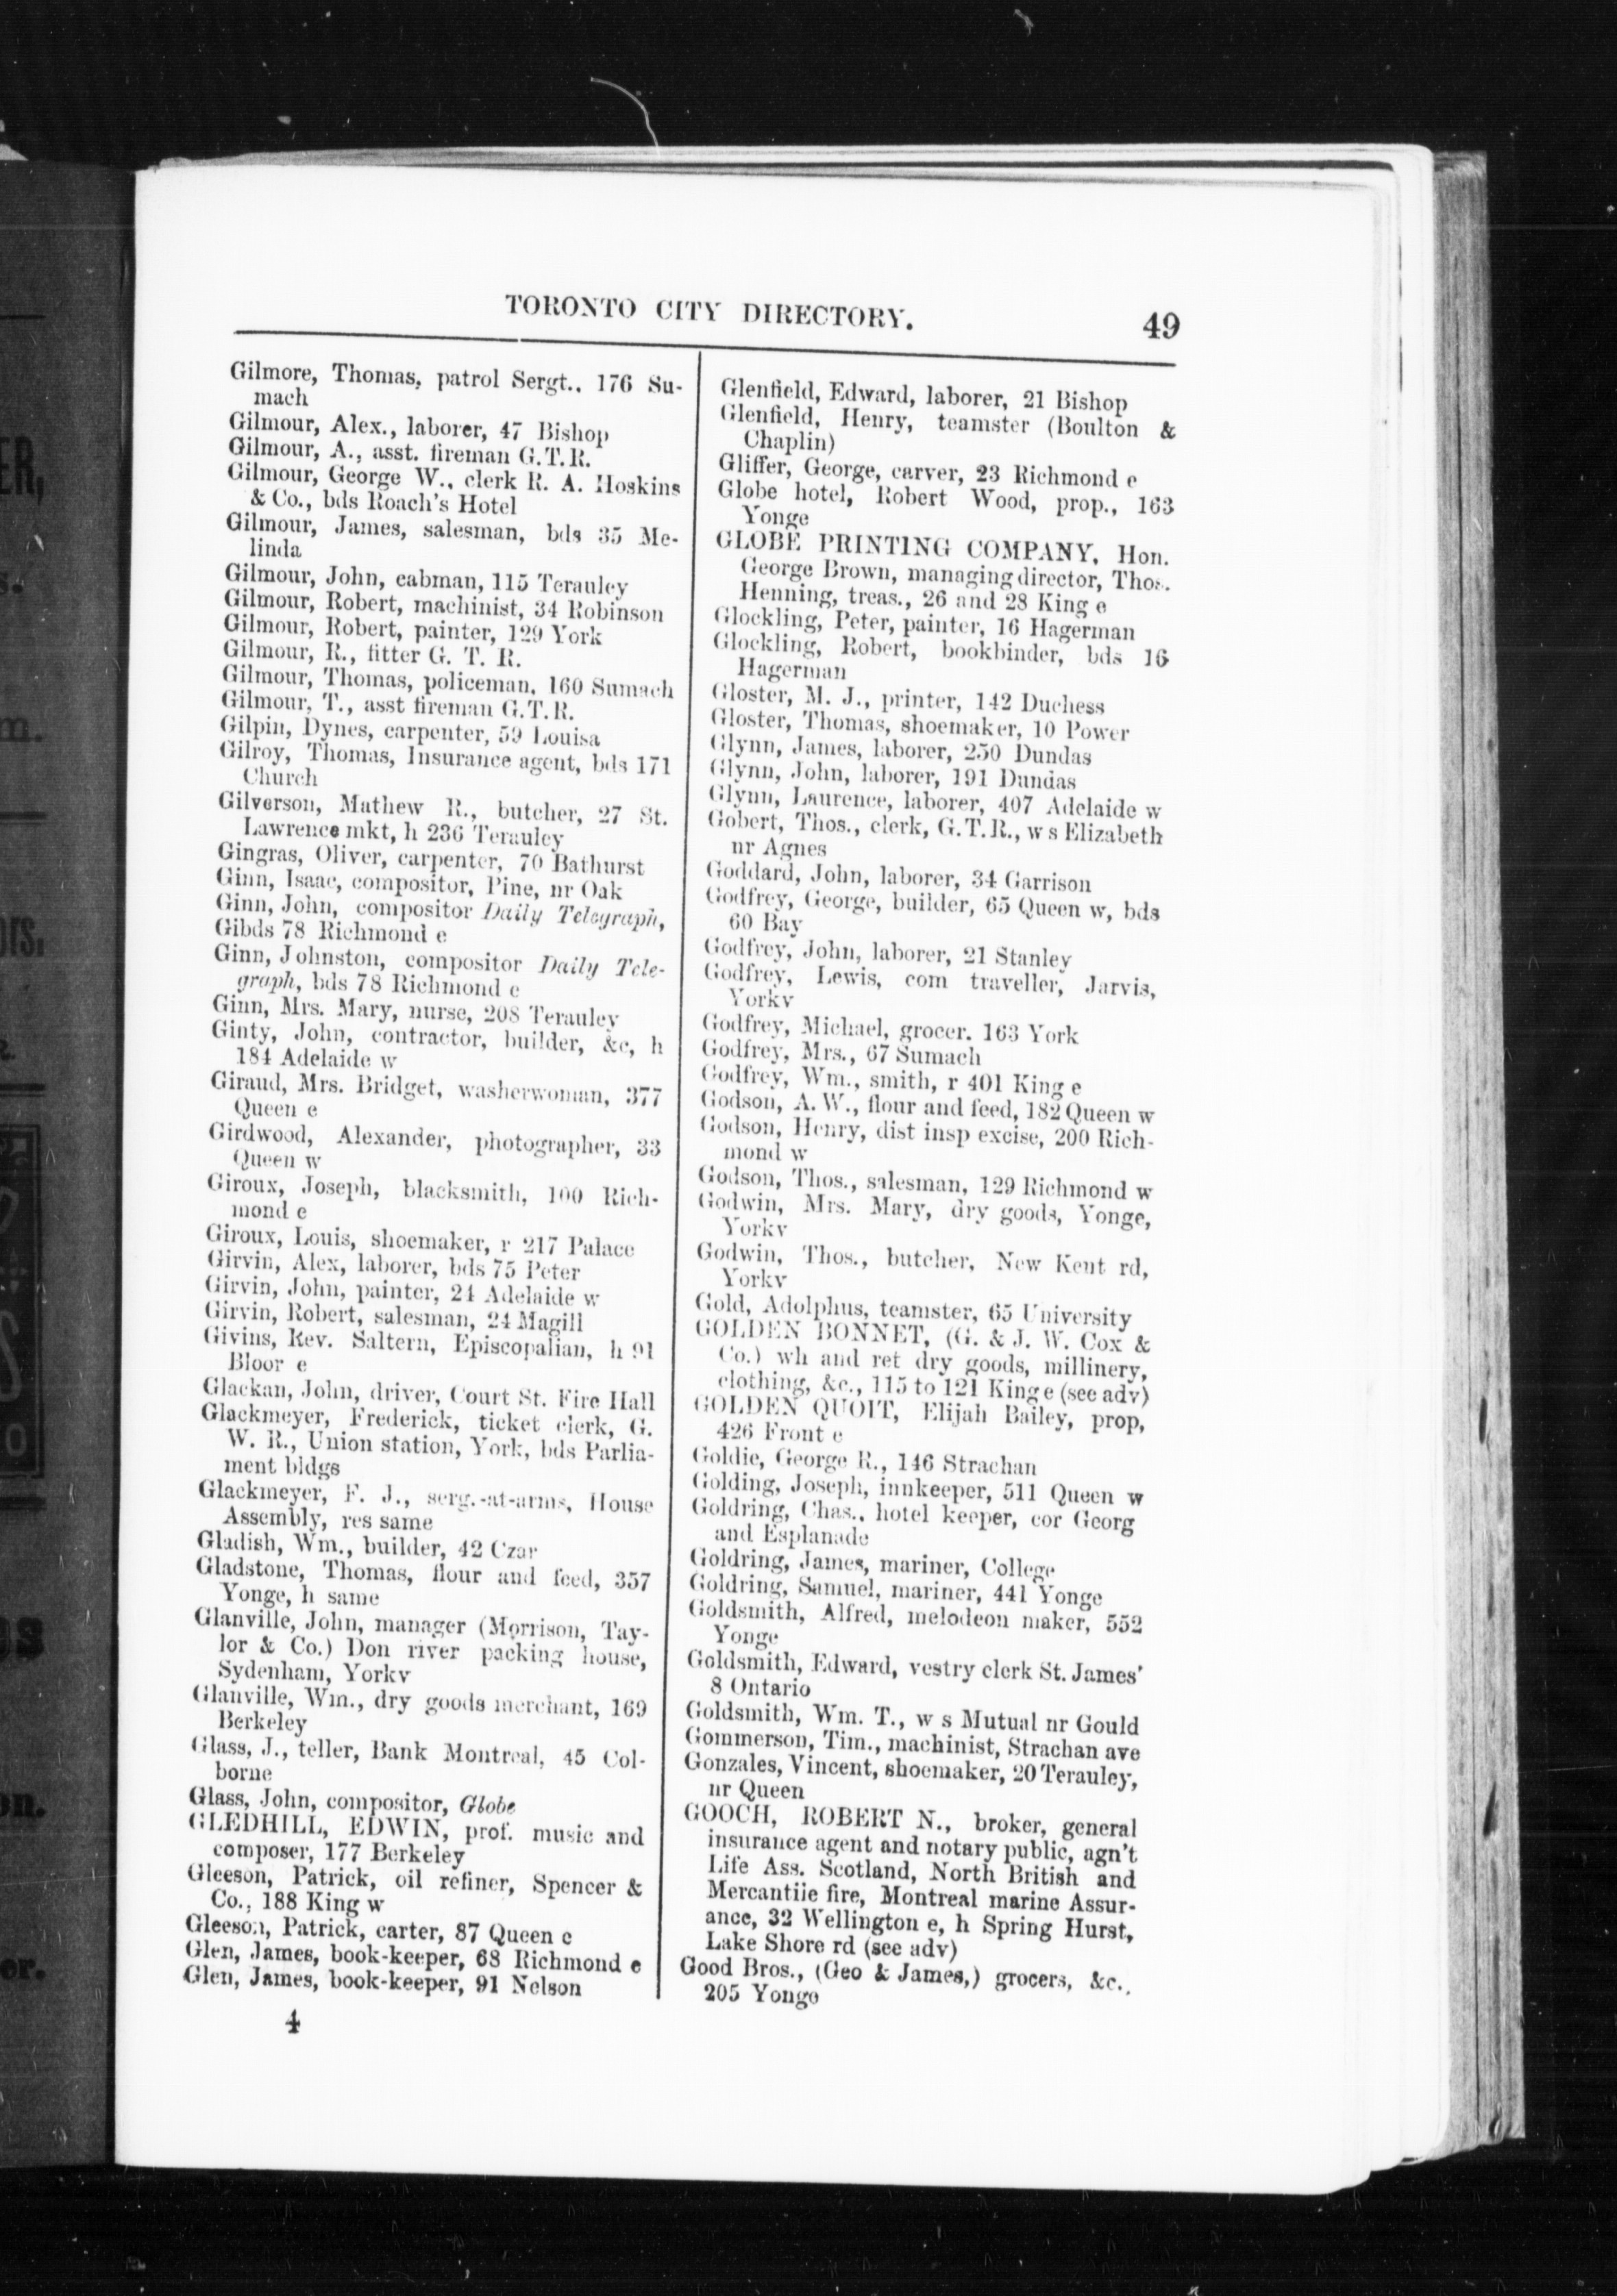 TORONTO CITY DIRECTORY.
49
Gilmore, Thomas, patrol Sergt.. 176 Su-
mach
Gilmour, Alex., laborer, 47 Bishop
Gilmour, A., asst. fireman G.T.R.
Gilmour, George W., clerk R. A. Hoskins
& Co., bds Roach's Hotel
Gilmour, James, salesman, bds 35 Me-
linda
Gilmour, John, cabman, 115 Terauley
Gilmour, Robert, machinist, 34 Robinson
Gilmour, Robert, painter, 129 York
Gilmour, R., fitter G. T. R.
Gilmour, Thomas, policeman, 160 Sumach
Gilmour, T., asst fireman G.T.R.
Gilpin, Dynes, carpenter, 59 Louisa
Gilroy, Thomas, Insurance agent, bds 171
Church
Gilverson, Mathew R., butcher, 27 St.
Lawrence mkt, h 236 Terauley
Gingras, Oliver, carpenter, 70 Bathurst
Ginn, Isaac, compositor, Pine, nr Oak
Ginn, John, compositor Daily Telegraph,
Gibds 78 Richmond e
Ginn, Johnston, compositor Daily Tele-
graph, bds 78 Richmond e
Ginn, Mrs. Mary, nurse, 208 Terauley
Ginty, John, contractor, builder, &c, h
184 Adelaide w
Giraud, Mrs. Bridget, washerwoman, 377
Queen e
Girdwood, Alexander, photographer, 33
Queen w
Giroux, Joseph, blacksmith, 100 Rich-
mond e
Giroux, Louis, shoemaker, r 217 Palace
Girvin, Alex, laborer, bds 75 Peter
Girvin, John, painter, 24 Adelaide w
Girvin, Robert, salesman, 24 Magill
Givins, Rev. Saltern, Episcopalian, h 91
Bloor e
Glackan, John, driver, Court St. Fire Hall
Glackmeyer, Frederick, ticket clerk, G.
W. R., Union station, York, bds Parlia-
ment bldgs
Glackmeyer, F. J., serg.-at-arms, House
Assembly, res same
Gladish, Wm., builder, 42 Czar
Gladstone, Thomas, flour and feed, 357
Yonge, h same
Glanville, John, manager (Morrison, Tay-
lor & Co.) Don river packing house,
Sydenham, Yorkv
Glanville, Wm., dry goods merchant, 169
Berkeley
Glass, J., teller, Bank Montreal, 45 Col-
borne
Glass, John, compositor, Globe
GLEDHILL, EDWIN, prof. music and
composer, 177 Berkeley
Gleeson, Patrick, oil refiner, Spencer &
Co., 188 King w
Gleeson, Patrick, carter, 87 Queen e
Glen, James, book-keeper, 68 Richmond e
Glen, James, book-keeper, 91 Nelson
4
Glenfield, Edward, laborer, 21 Bishop
Glenfield, Henry, teamster (Boulton &
Chaplin)
Gliffer, George, carver, 23 Richmond e
Globe hotel, Robert Wood, prop., 163
Yonge
GLOBE PRINTING COMPANY, Hon.
George Brown, managing director, Thos.
Henning, treas., 26 and 28 King e
Glockling, Peter, painter, 16 Hagerman
Glockling, Robert, bookbinder, bds 16
Hagerman
Gloster, M. J., printer, 142 Duchess
Gloster, Thomas, shoemaker, 10 Power
Glynn, James, laborer, 250 Dundas
Glynn, John, laborer, 191 Dundas
Glynn, Laurence, laborer, 407 Adelaide w
Gobert, Thos., clerk, G.T.R., w s Elizabeth
nr Agnes
Goddard, John, laborer, 34 Garrison
Godfrey, George, builder, 65 Queen w, bds
60 Bay
Godfrey, John, laborer, 21 Stanley
Godfrey, Lewis, com traveller, Jarvis,
Yorkv
Godfrey, Michael, grocer. 163 York
Godfrey, Mrs., 67 Sumach
Godfrey, Wm., smith, r 401 King e
Godson, A. W., flour and feed, 182 Queen w
Godson, Henry, dist insp excise, 200 Rich-
mond w
Godson, Thos., salesman, 129 Richmond w
Godwin, Mrs. Mary, dry goods, Yonge,
Yorkv
Godwin, Thos., butcher, New Kent rd,
Yorkv
Gold, Adolphus, teamster, 65 University
GOLDEN BONNET, (G. & J. W. Cox &
Co.) wh and ret dry goods, millinery,
clothing, &c., 115 to 121 King e (see adv)
GOLDEN QUOIT, Elijah Bailey, prop,
426 Front e
Goldie, George R., 146 Strachan
Golding, Joseph, innkeeper, 511 Queen w
Goldring, Chas., hotel keeper, cor Georg
and Esplanade
Goldring, James, mariner, College
Goldring, Samuel, mariner, 441 Yonge
Goldsmith, Alfred, melodeon maker, 552
Yonge
Goldsmith, Edward, vestry clerk St. James'
8 Ontario
Goldsmith, Wm. T., w s Mutual nr Gould
Gommerson, Tim., machinist, Strachan ave
Gonzales, Vincent, shoemaker, 20 Terauley,
nr Queen
GOOCH, ROBERT N., broker, general
insurance agent and notary public, agn't
Life Ass. Scotland, North British and
Mercantiie fire, Montreal marine Assur-
ance, 32 Wellington e, h Spring Hurst,
Lake Shore rd (see adv)
Good Bros., (Geo & James,) grocers, &c.,
205 Yonge